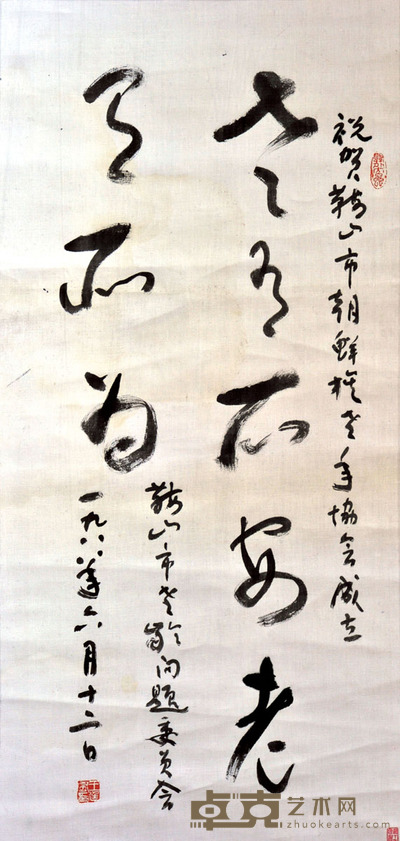 祝贺鞍山市朝鲜族老年协会成立
老有所安老
有所为
鞍山市老龄问题委员会
一九八八年六月十二日
卓克艺术网
zhuokearts.com